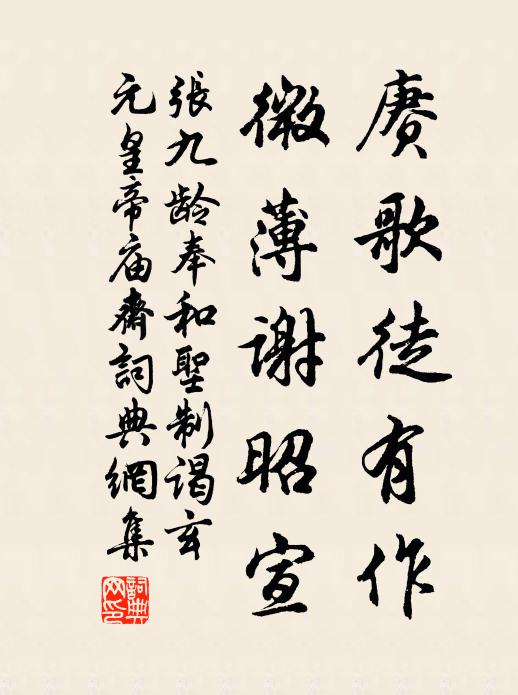 赓歌徒有作
微薄謝昭宣
張九龄奉和聖制谒玄
元皇帝庙齋詞典網集
詞典
网印